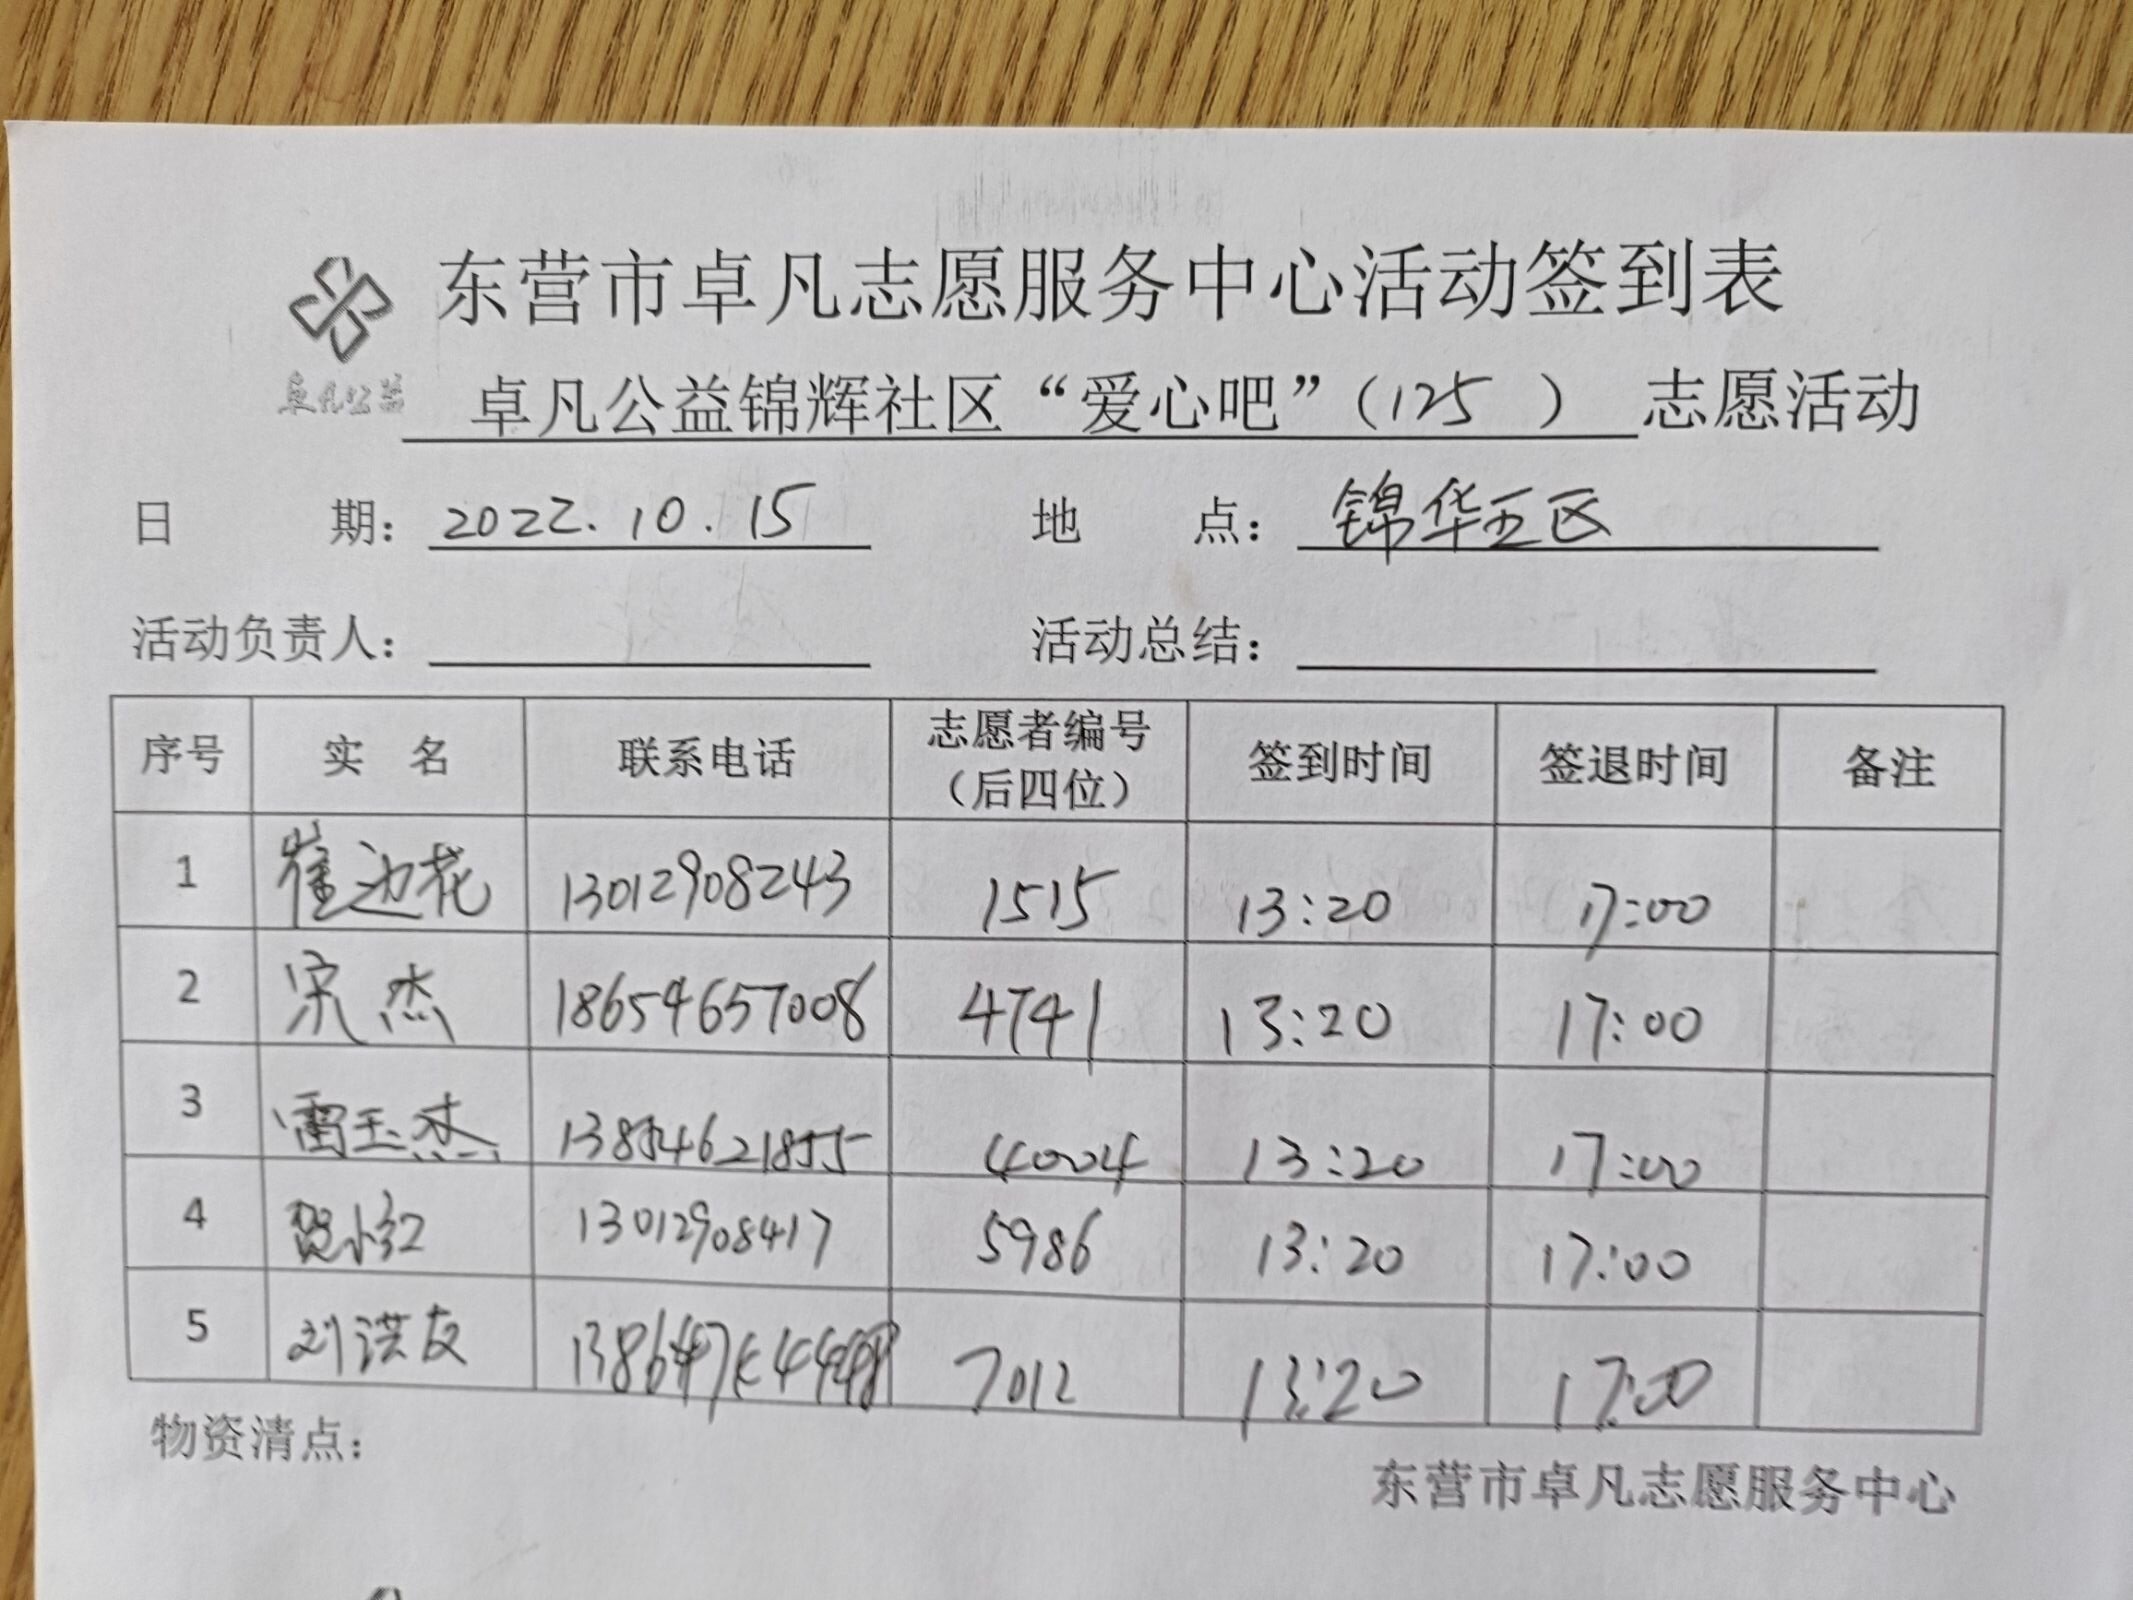 东营市卓凡志愿服务中心活动签到表
卓凡公益
卓凡公益锦辉社区“爱心吧”（125 ） 志愿活动
日 期： 2022.10.15 地 点： 锦华五区
活动负责人： 活动总结：
序号 实 名 联系电话 志愿者编号（后四位） 签到时间 签退时间 备注
1 崔边花 13012908243 1515 13:20 17:00
2 宋杰 18654657008 4741 13:20 17:00
3 雷玉杰 13854621855 4004 13:20 17:00
4 贺小红 13012908417 5986 13:20 17:00
5 刘洪友 7012 13:20 17:00
物资清点：
东营市卓凡志愿服务中心